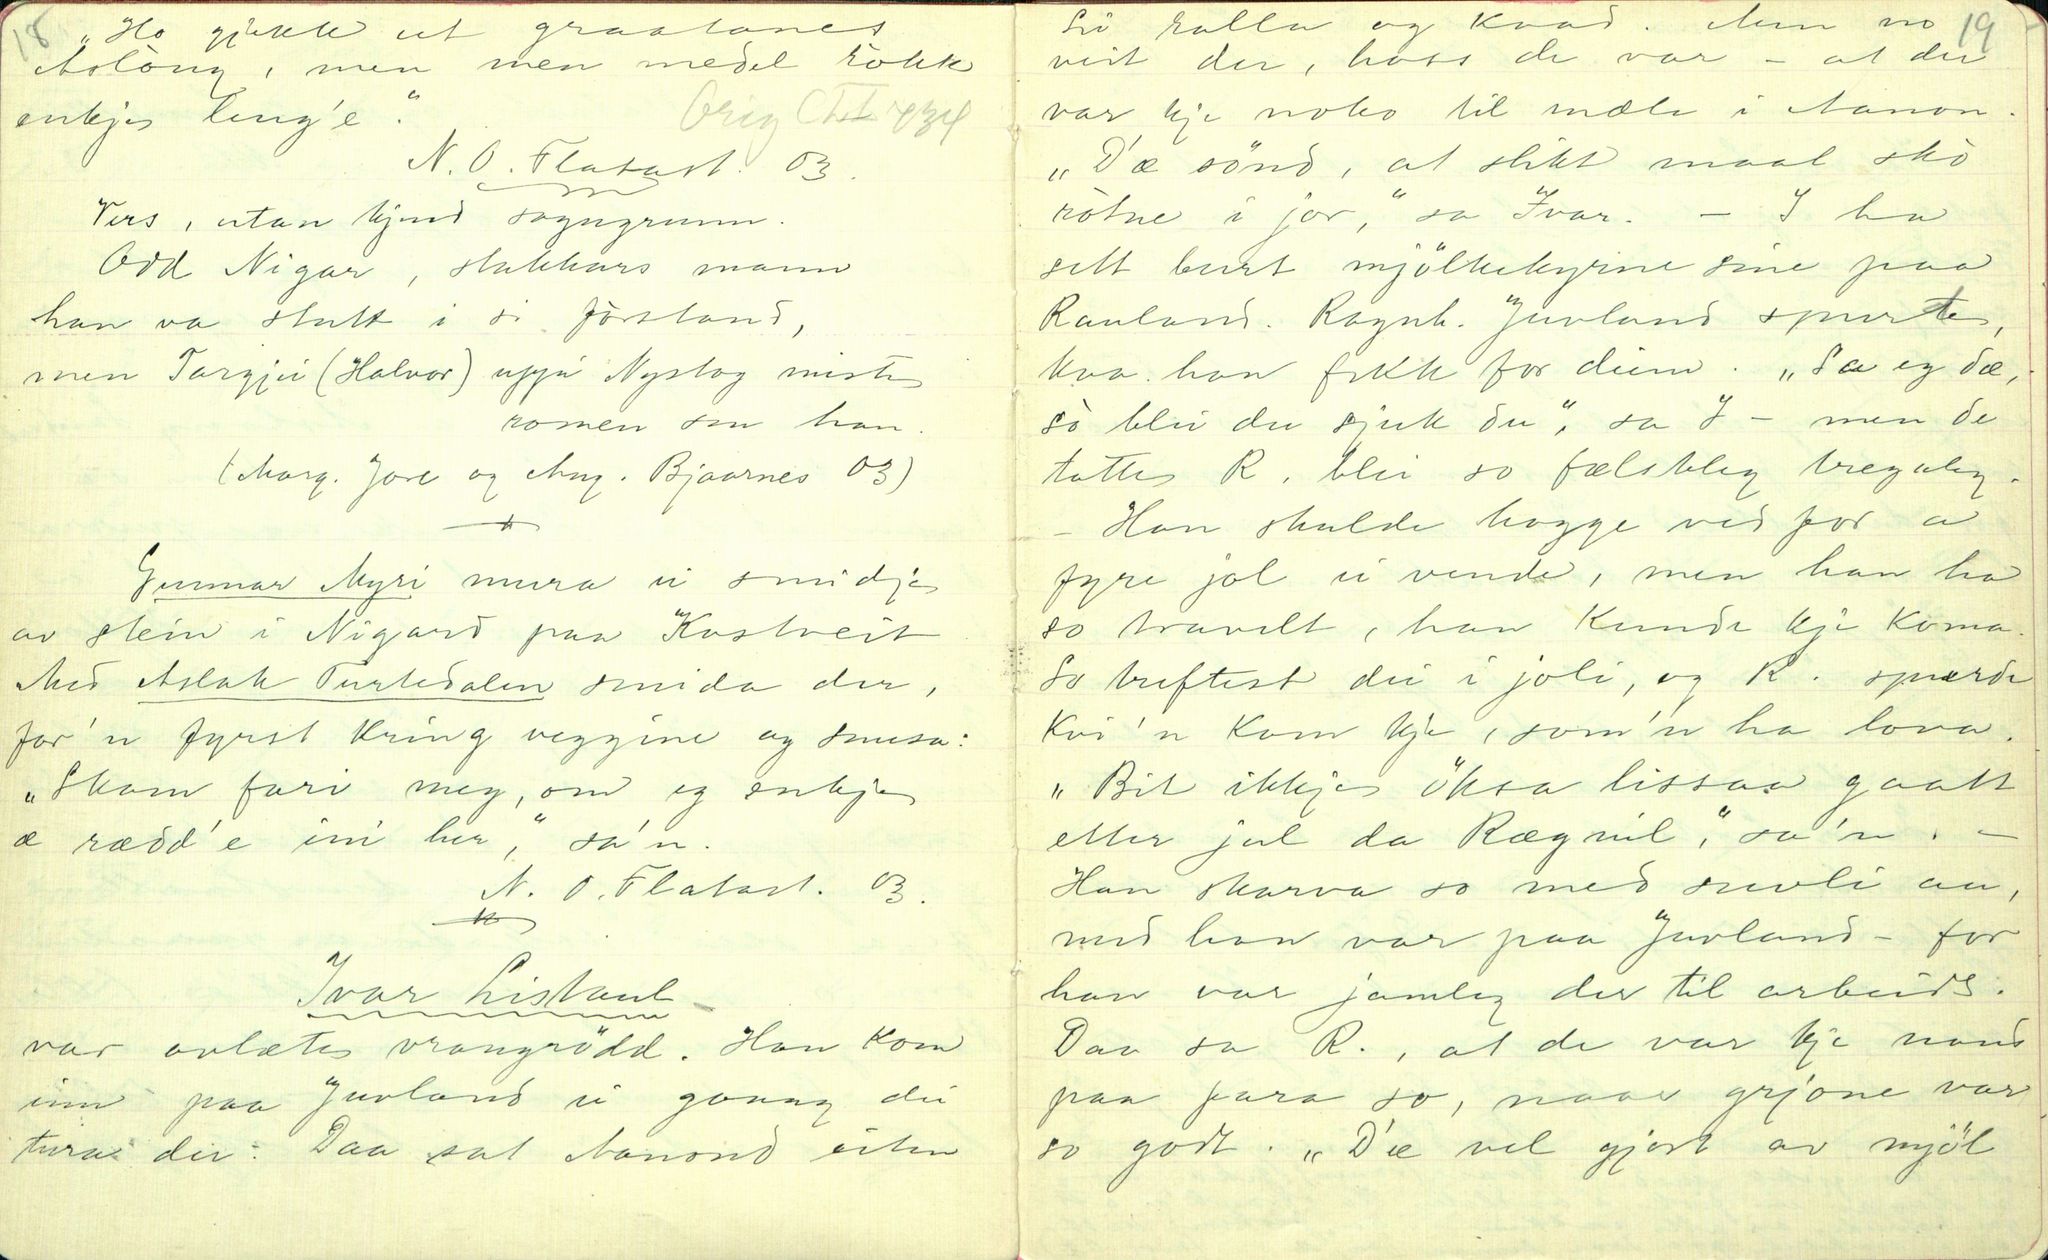 18
„Ho gjekk ut graatanes
Aslòug, men men medel ròkk
enkjes leng'e".
N. O. Flatast. 03.
Vers, utan kjend sogngrunn.
Odd Nigar, stakkars mann
han va stutt i si fòrstand,
men Targjei (Halvor) uppi Nystog miste
romen son han.
(Marg. Jore og Aug. Bjaarnes 03)
Gunnar Myri mura ei smidje
av stein i Nigard paa Kostveit
Med Aslak Turtedalen smida der,
for'n fyrst kring veggine og snusa:
„Skam fari meg, om eg enkjes
æ rædd'e inni her," sa'n.
N. O. Flatast. 03.
Ivar Listaul
var avlætes vrangrödd. Han kom
inn paa Juvland ei gaang dei
tura der. Daa sat Aanond
19
og kvad. Men no
veit dei, hoss de var - at dei
var kje noko til mæle i Aanon.
„D'æ sönd, at slikt maal skò
ròtne i jor," sa Ivar. - I ha
sett burt mjölkekyrine sine paa
Rauland. Ragnh. Juvland spurte,
kva han fekk for deim. „Sa eg dæ,
sò blei du sjuk du", sa I - men de
tottes R. blei so fælsleg tregaleg.
- Han skulde hogge ved for a
fyre jol ei vende, men han ha
so travelt, han kunde kje koma.
So treftest dei i joli, og R. spurde
kvi'n kom kje, som'n ha lova.
„Bit ikkjes öksa lissaa gaatt
etter jul da Rægnil," sa'n. -
Han skarva so med suvli au,
med han var paa Juvland - for
han var jamleg der til arbeids.
Daa sa R., at de var kje naud
paa fara so, naar grjone var
so godt. „D'æ vel gjort av mjöl